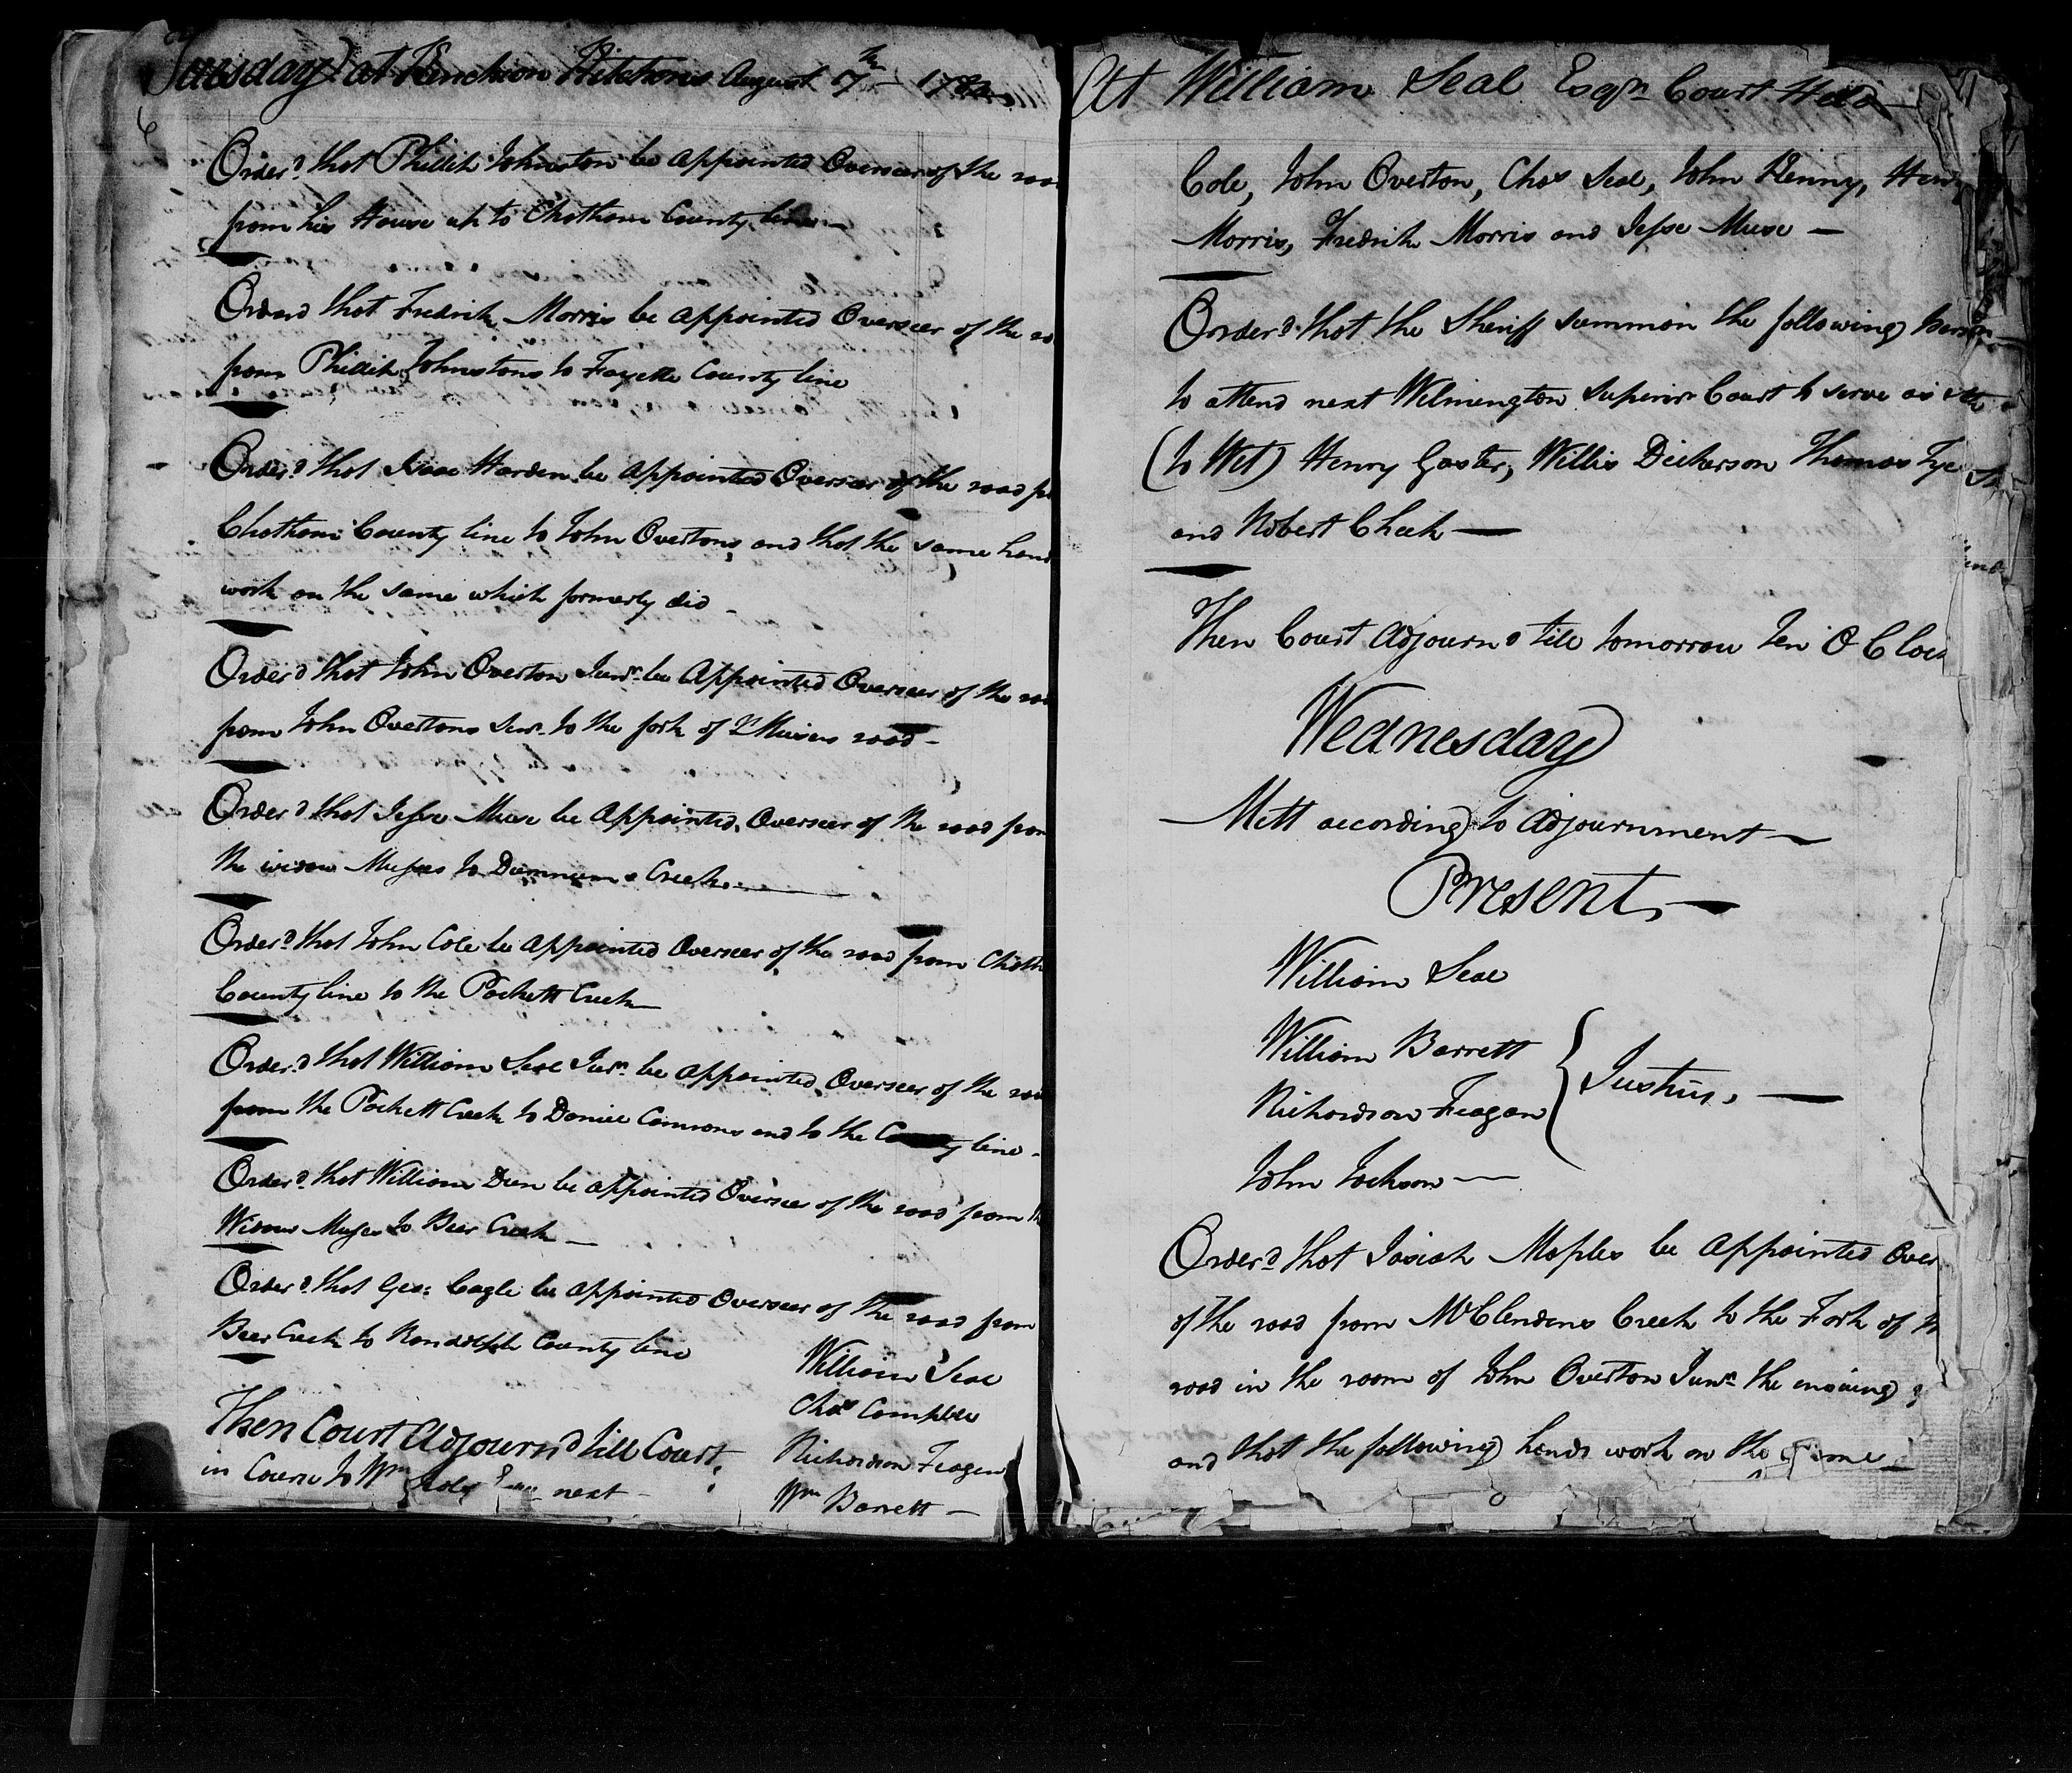 Tuesday at Kinchion Kitchens August 7th 178
Order'd that Phillip Johnston be appointed Overseer of the roa
from his House up to Chatham County line
Orderd that Fredrik Morris be appointed Overseer of the ro
from Phillip Johnstons to Fayette County line
Order'd that Isaac Harden be appointed Overseer of the road fr
Chatham County line to John Overtons and that the same hand
work on the same which formerly did
Order'd that John Overton Junr. be Appointed Overseer of the roa
from John Overtons Senr. to the fork of Musers road
Order'd that Jesse Muse be Appointed Overseer of the road from
the widow Muses to Dunnum s Creek
Order'd that John Cole be appointed Overseer of the road from Chath
County line to the Pockett Creek
Order'd that William Seal Junr. be appointed Overseer of the roa
from the Pockett Creek to Daniel Camrons and to the County line
Order'd that William Dun be appointed Overseer of the road from th
Widow Muses to Bear Creek
Order'd that Geo: Cagle be appointed Overseer of the road from
Bear Creek to Randolph County line
William Seal
Chas Campble
Then Court Adjourn'd till Court
Richardson Feagen
in Course to Wm Seals next
Wm Barrett
At William Seal Esqr. Court Held
Cole, John Overton, Chas Seal, John Kenny, Henry
Morris, Fredrik Morris and Jesse Muse
Order'd that the Sheriff summon the following Person
to attend next Wilmington Superior Court to serve as
(to Wit) Henry Gaster, Willis Dickerson Thomas Tys
and Robert Cheek
Then Court Adjourn'd till tomorrow Ten O Clock
Wednesday
Mett according to Adjournment
Present
William Seal
William Barrett
Justus.
Richardson Feagan
John Jackson
Order'd that Josiah Maples be Appointed Over
of the road from McClendens Creek to the Fork of
road in the room of John Overton Junr. the ensuing
and that the following hands work on the same